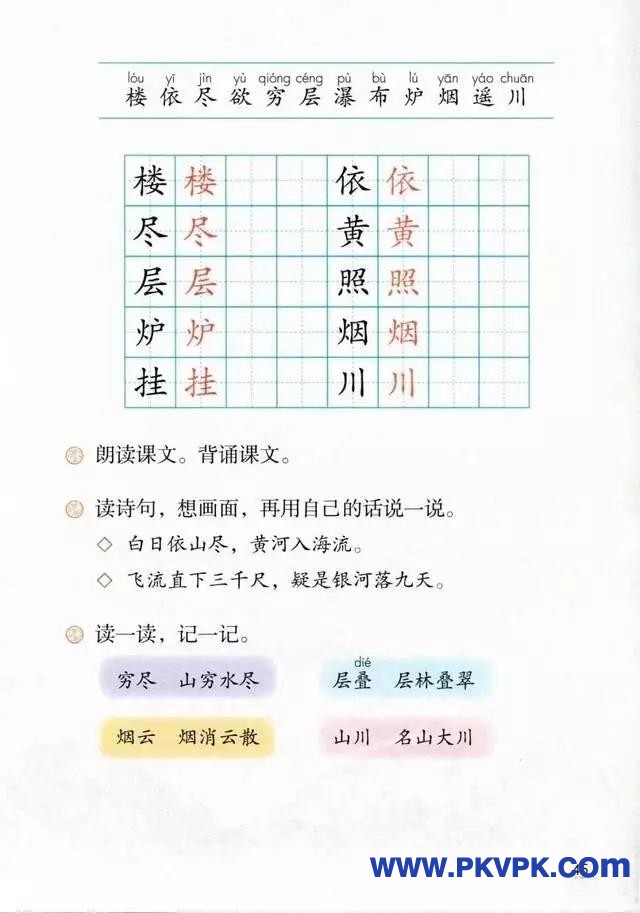 lóu yī jìn yù qióng céng pù bù lú yān yáo chuān
楼 依 尽 欲 穷 层 瀑 布 炉 烟 遥 川
楼 楼 依 依
尽 尽 黄 黄
层 层 照 照
炉 炉 烟 烟
挂 挂 川 川
朗读课文。背诵课文。
读诗句，想画面，再用自己的话说一说。
◇ 白日依山尽，黄河入海流。
◇ 飞流直下三千尺，疑是银河落九天。
读一读，记一记。
dié
穷尽 山穷水尽 层叠 层林叠翠
烟云 烟消云散 山川 名山大川
45
www.PKVPK.com